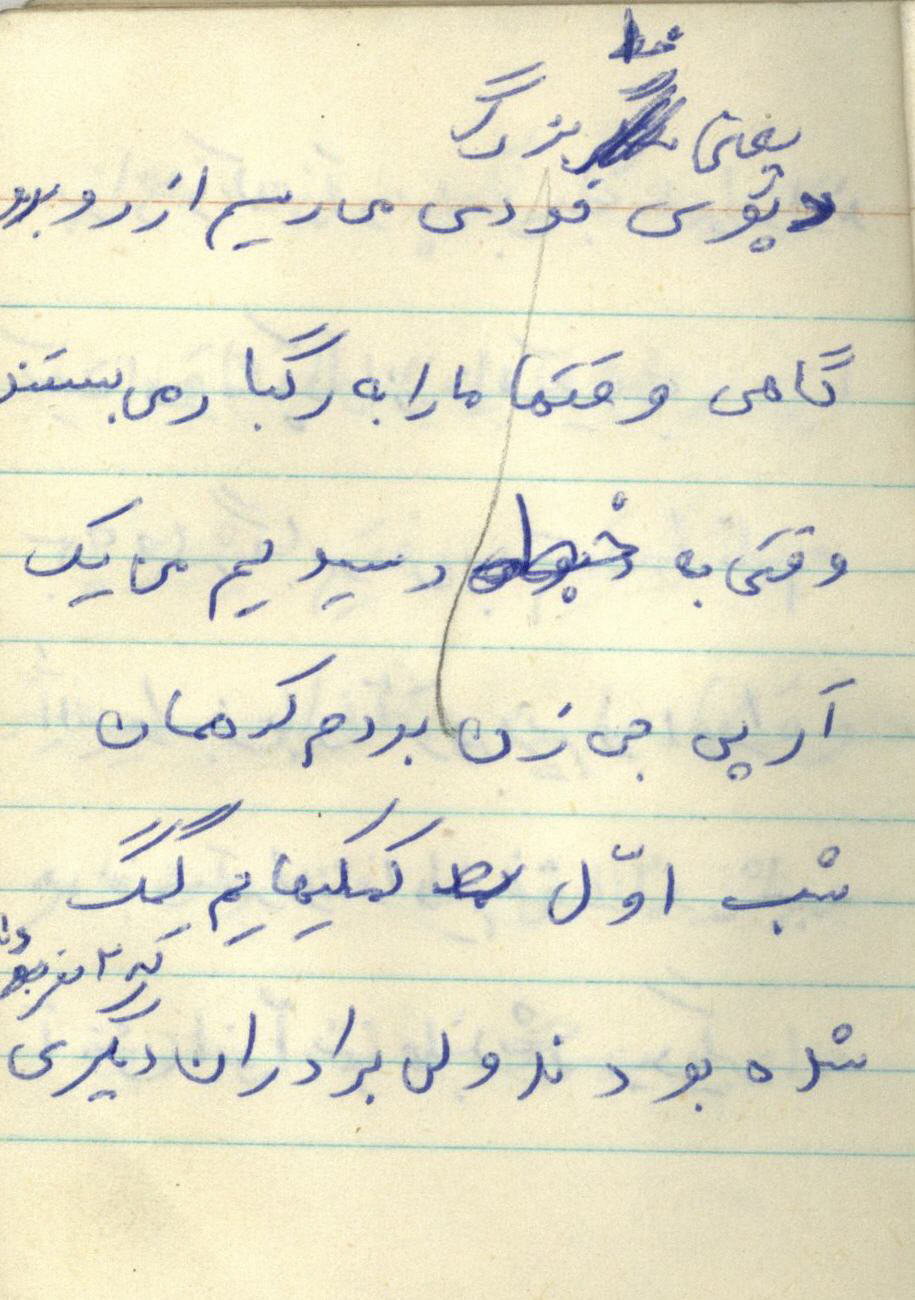 خط
یعنی بزرگ
دپوی خودی می رسیم از روبرو
گاهی وقتها ما را به رگبار می بستند
وقتی به خط رسیدیم من یک
آر پی جی زن بودم که همان
شب اوّل کمکیهایم گم
که ۲ نفر
شده بودند ولی برادران دیگری